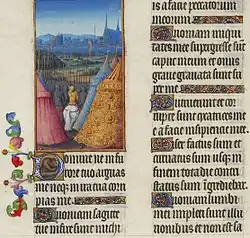 Domine ne in fu
rore tuo arguas
me neq; in ira tua corri
pias me
Quoniam sagitte
tue infixe sunt michi
is a facie peccatorum
meorum
Quoniam iniqui
tates mee supergresse sunt
caput meum et
onus
grave gravate sunt su
per me
et cor
rupte sunt cicatrices me
e a facie insipientie mee
iser factus sum et
curvatus sum usq; in
finem tota die contri
status ingrediebar
Quoniam lumbi
mei impleti sunt illusi
onibus et non est sa